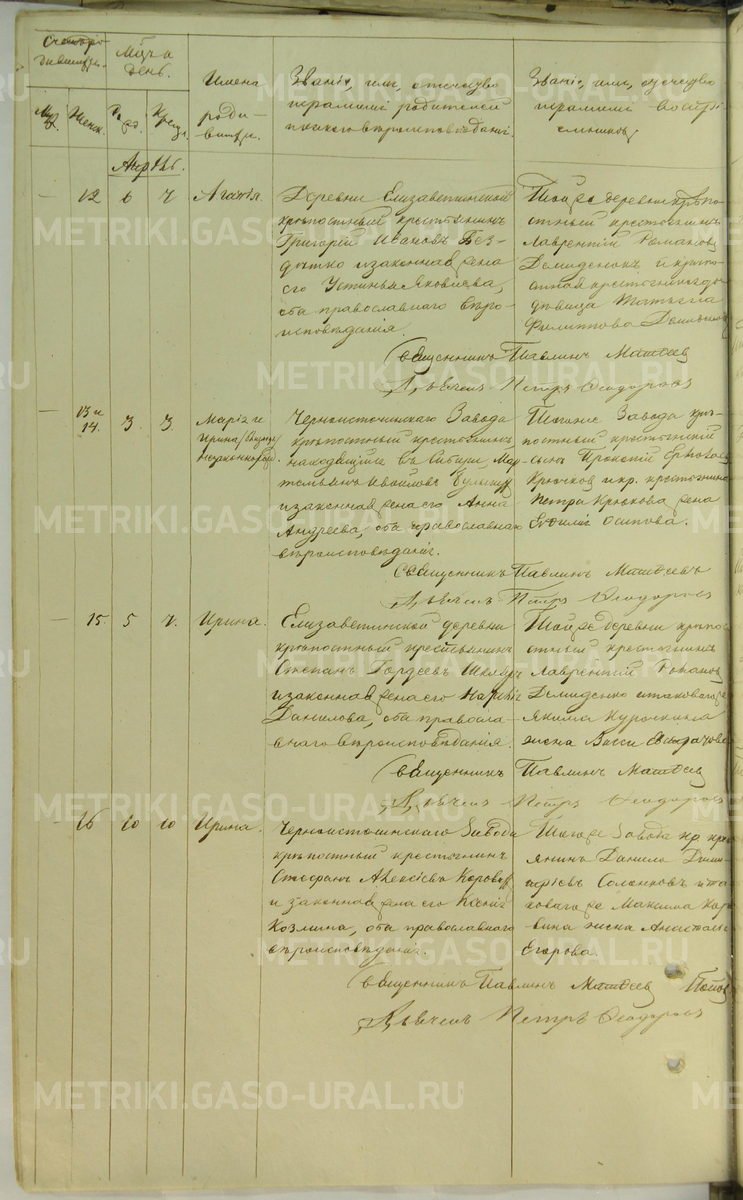 Счетъ ро-
дившихся.
Мѣсяцъ и
день.
Имена
роди-
вшихся.
Званіе, имя, отчество
и фамилія родителей
и какого вѣроисповѣданія.
Званіе, имя, отчество
и фамилія воспрі-
емниковъ.
Муж.
Женск.
Рожд.
Крещ.
Апрѣль.
— 12 6 7 Агафія.
Деревни Елизаветинской
крѣпостный крестьянинъ
Григорій Ивановъ Без-
и законная жена
его Устинья Яковлева,
оба православнаго вѣро-
исповѣданія.
Той же деревни крѣпо-
стный крестьянинъ
Лаврентій Романовъ
Демиденокъ и крѣпо-
стная крестьянская
дѣвица Татьяна
Филиппова
Священникъ Павлинъ Матѳеев
Дьячекъ Петръ Ѳеодоровъ
— 13 и
14. 3. 3.
Марія и
Ирина
незаконнорож.
Черноисточинскаго Завода
крѣпостный крестьянинъ
находящійся въ Сибири,
Ивайловъ
и законная жена его Анна
Андреева, оба православнаго
вѣроисповѣданія.
Того же Завода крѣ-
постный крестьянскій
сынъ
Крючковъ и кр. крестьянина
Петра Крюкова жена
Евдокія Осипова.
Священникъ Павлинъ Матѳеевъ
Дьячекъ Петръ Ѳеодоровъ
— 15. 5 7. Ирина.
Елизаветинской деревни
крѣпостный крестьянинъ
Степанъ Гордеевъ
и законная жена его
Данилова, оба правосла-
внаго вѣроисповѣданія.
Той же деревни крѣпо-
стный крестьянинъ
Лаврентій Романовъ
Демиденко и таковаго же
Якима Курочкина
жена
Священникъ Павлинъ Матѳеев
Дьячекъ Петръ Ѳеодоровъ
— 16 10 10 Ирина.
Черноисточинскаго Завода
крѣпостный крестьянинъ
Стефанъ Алексіевъ
и законная жена его Ксенія
Козмина, оба православнаго
вѣроисповѣданія.
Того же Завода кр. крест-
янинъ Данило Дими-
тріевъ Солонковъ и та-
коваго же Максима
жена Анастасія
Егорова.
Священникъ Павлинъ Матѳеев Поповъ
Дьячекъ Петръ Ѳеодоровъ
METRIKI.GASO-URAL.RU